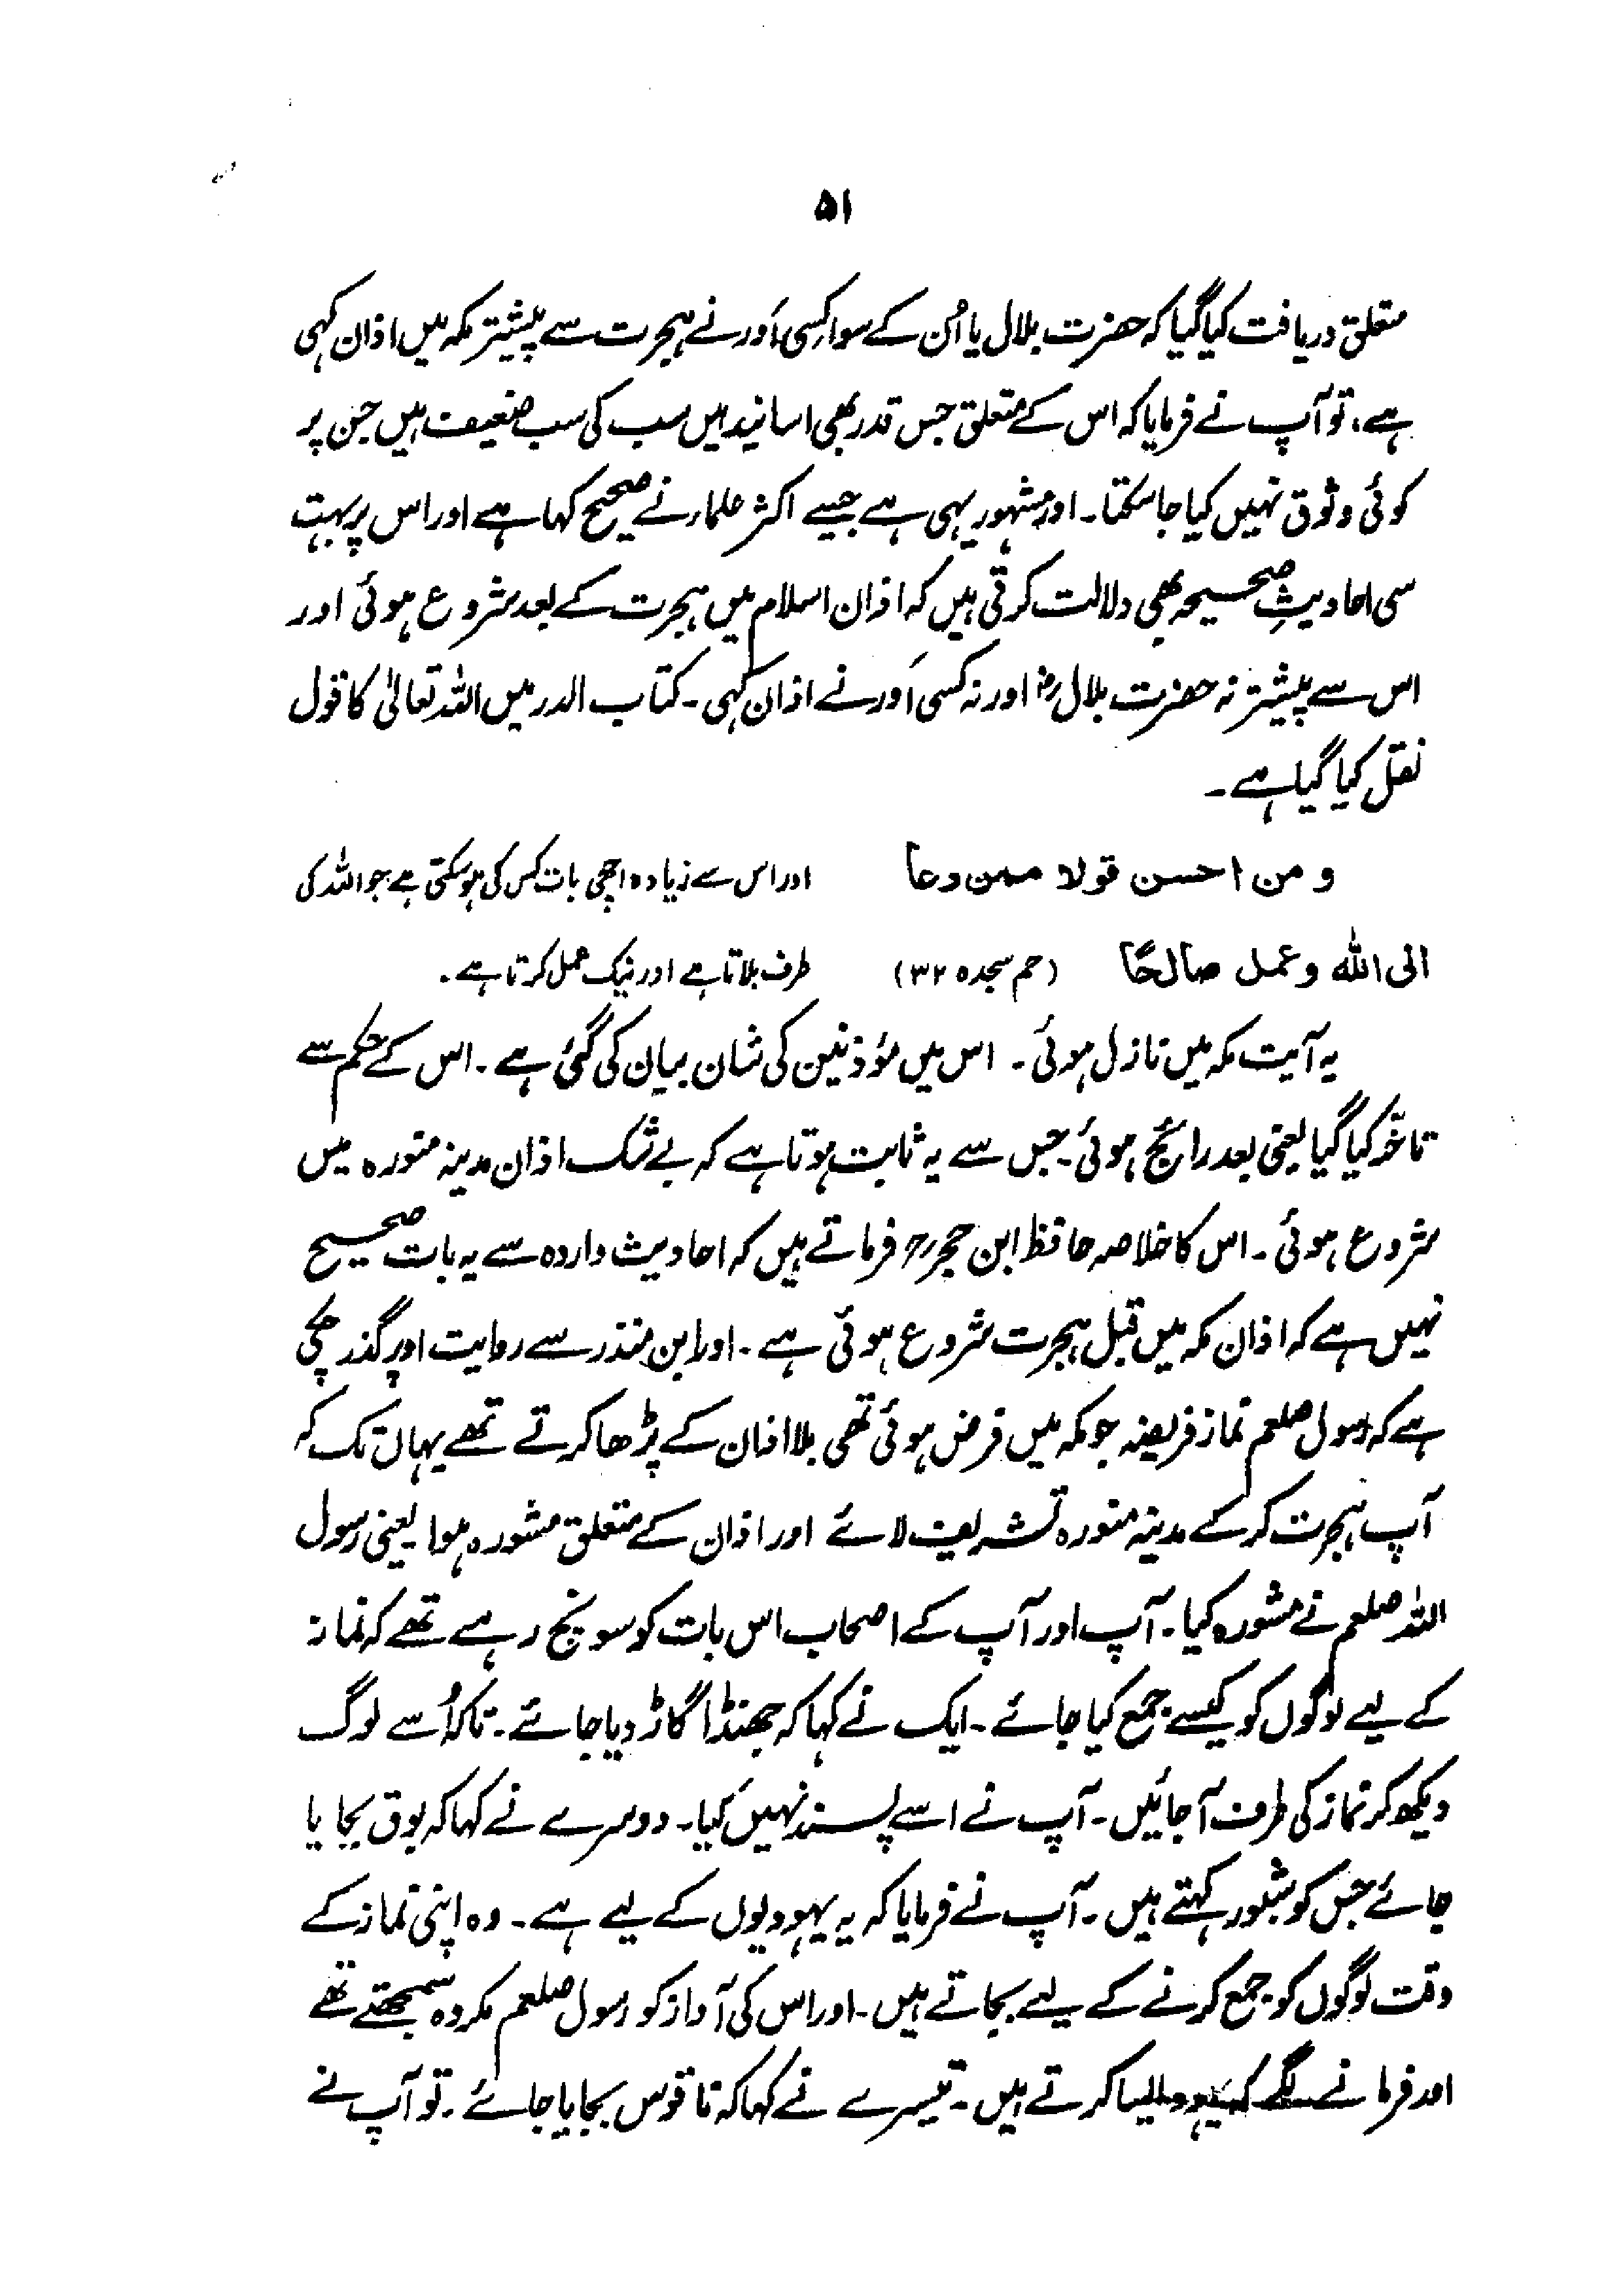 ۵۱
متعلق دریافت کیا گیا کہ حضرت بلال یا اُن کے سوا کسی اَور نے ہجرت سے پیشتر مکہ میں اذان کہی
ہے، تو آپ نے فرمایا کہ اس کے متعلق جس قدر بھی اسانید ہیں سب کی سب ضعیف ہیں جن پر
کوئی وثوق نہیں کیا جا سکتا۔ اور مشہور یہی ہے جیسے اکثر علماء نے صحیح کہا ہے اور اس پر بہت
سی احادیثِ صحیحہ بھی دلالت کرتی ہیں کہ اذان اسلام میں ہجرت کے بعد شروع ہوئی اور
اس سے پیشتر نہ حضرت بلال رض اور نہ کسی اَور نے اذان کہی۔ کتاب الدر میں اللہ تعالیٰ کا قول
نقل کیا گیا ہے۔
و من احسن قولا ممن دعا اور اس سے زیادہ اچھی بات کس کی ہو سکتی ہے جو اللہ کی
الی اللہ وعمل صالحًا (حم سجدہ ۳۲) طرف بلاتا ہے اور نیک عمل کرتا ہے۔
یہ آیت مکہ میں نازل ہوئی۔ اس میں مؤذنین کی شان بیان کی گئی ہے۔ اس کے حکم سے
تاخّر کیا گیا یعنی بعد رائج ہوئی۔ جس سے یہ ثابت ہوتا ہے کہ بے شک اذان مدینہ منورہ میں
شروع ہوئی۔ اس کا خلاصہ حافظ ابن حجر رح فرماتے ہیں کہ احادیث واردہ سے یہ بات صحیح
نہیں ہے کہ اذان مکہ میں قبل ہجرت شروع ہوئی ہے۔ اور ابن منذر سے روایت اوپر گذر چکی
ہے کہ رسول صلعم نماز فریضہ جو مکہ میں فرض ہوئی تھی بلا اذان کے پڑھا کرتے تھے یہاں تک کہ
آپ ہجرت کر کے مدینہ منورہ تشریف لائے اور اذان کے متعلق مشورہ ہوا یعنی رسول
اللہ صلعم نے مشورہ کیا۔ آپ اور آپ کے اصحاب اس بات کو سونچ رہے تھے کہ نماز
کے لیے لوگوں کو کیسے جمع کیا جائے۔ ایک نے کہا کہ جھنڈا گاڑ دیا جائے۔ تاکہ اُسے لوگ
دیکھ کر نماز کی طرف آ جائیں۔ آپ نے اسے پسند نہیں کیا۔ دوسرے نے کہا کہ بوق بجایا
جائے جس کو شبور کہتے ہیں۔ آپ نے فرمایا کہ یہ یہودیوں کے لیے ہے۔ وہ اپنی نماز کے
وقت لوگوں کو جمع کرنے کے لیے بجاتے ہیں۔ اور اس کی آواز کو رسول صلعم مکروہ سمجھتے تھے
اور فرمانے لگے کہ یہود ایسا کرتے ہیں۔ تیسرے نے کہا کہ ناقوس بجایا جائے۔ تو آپ نے